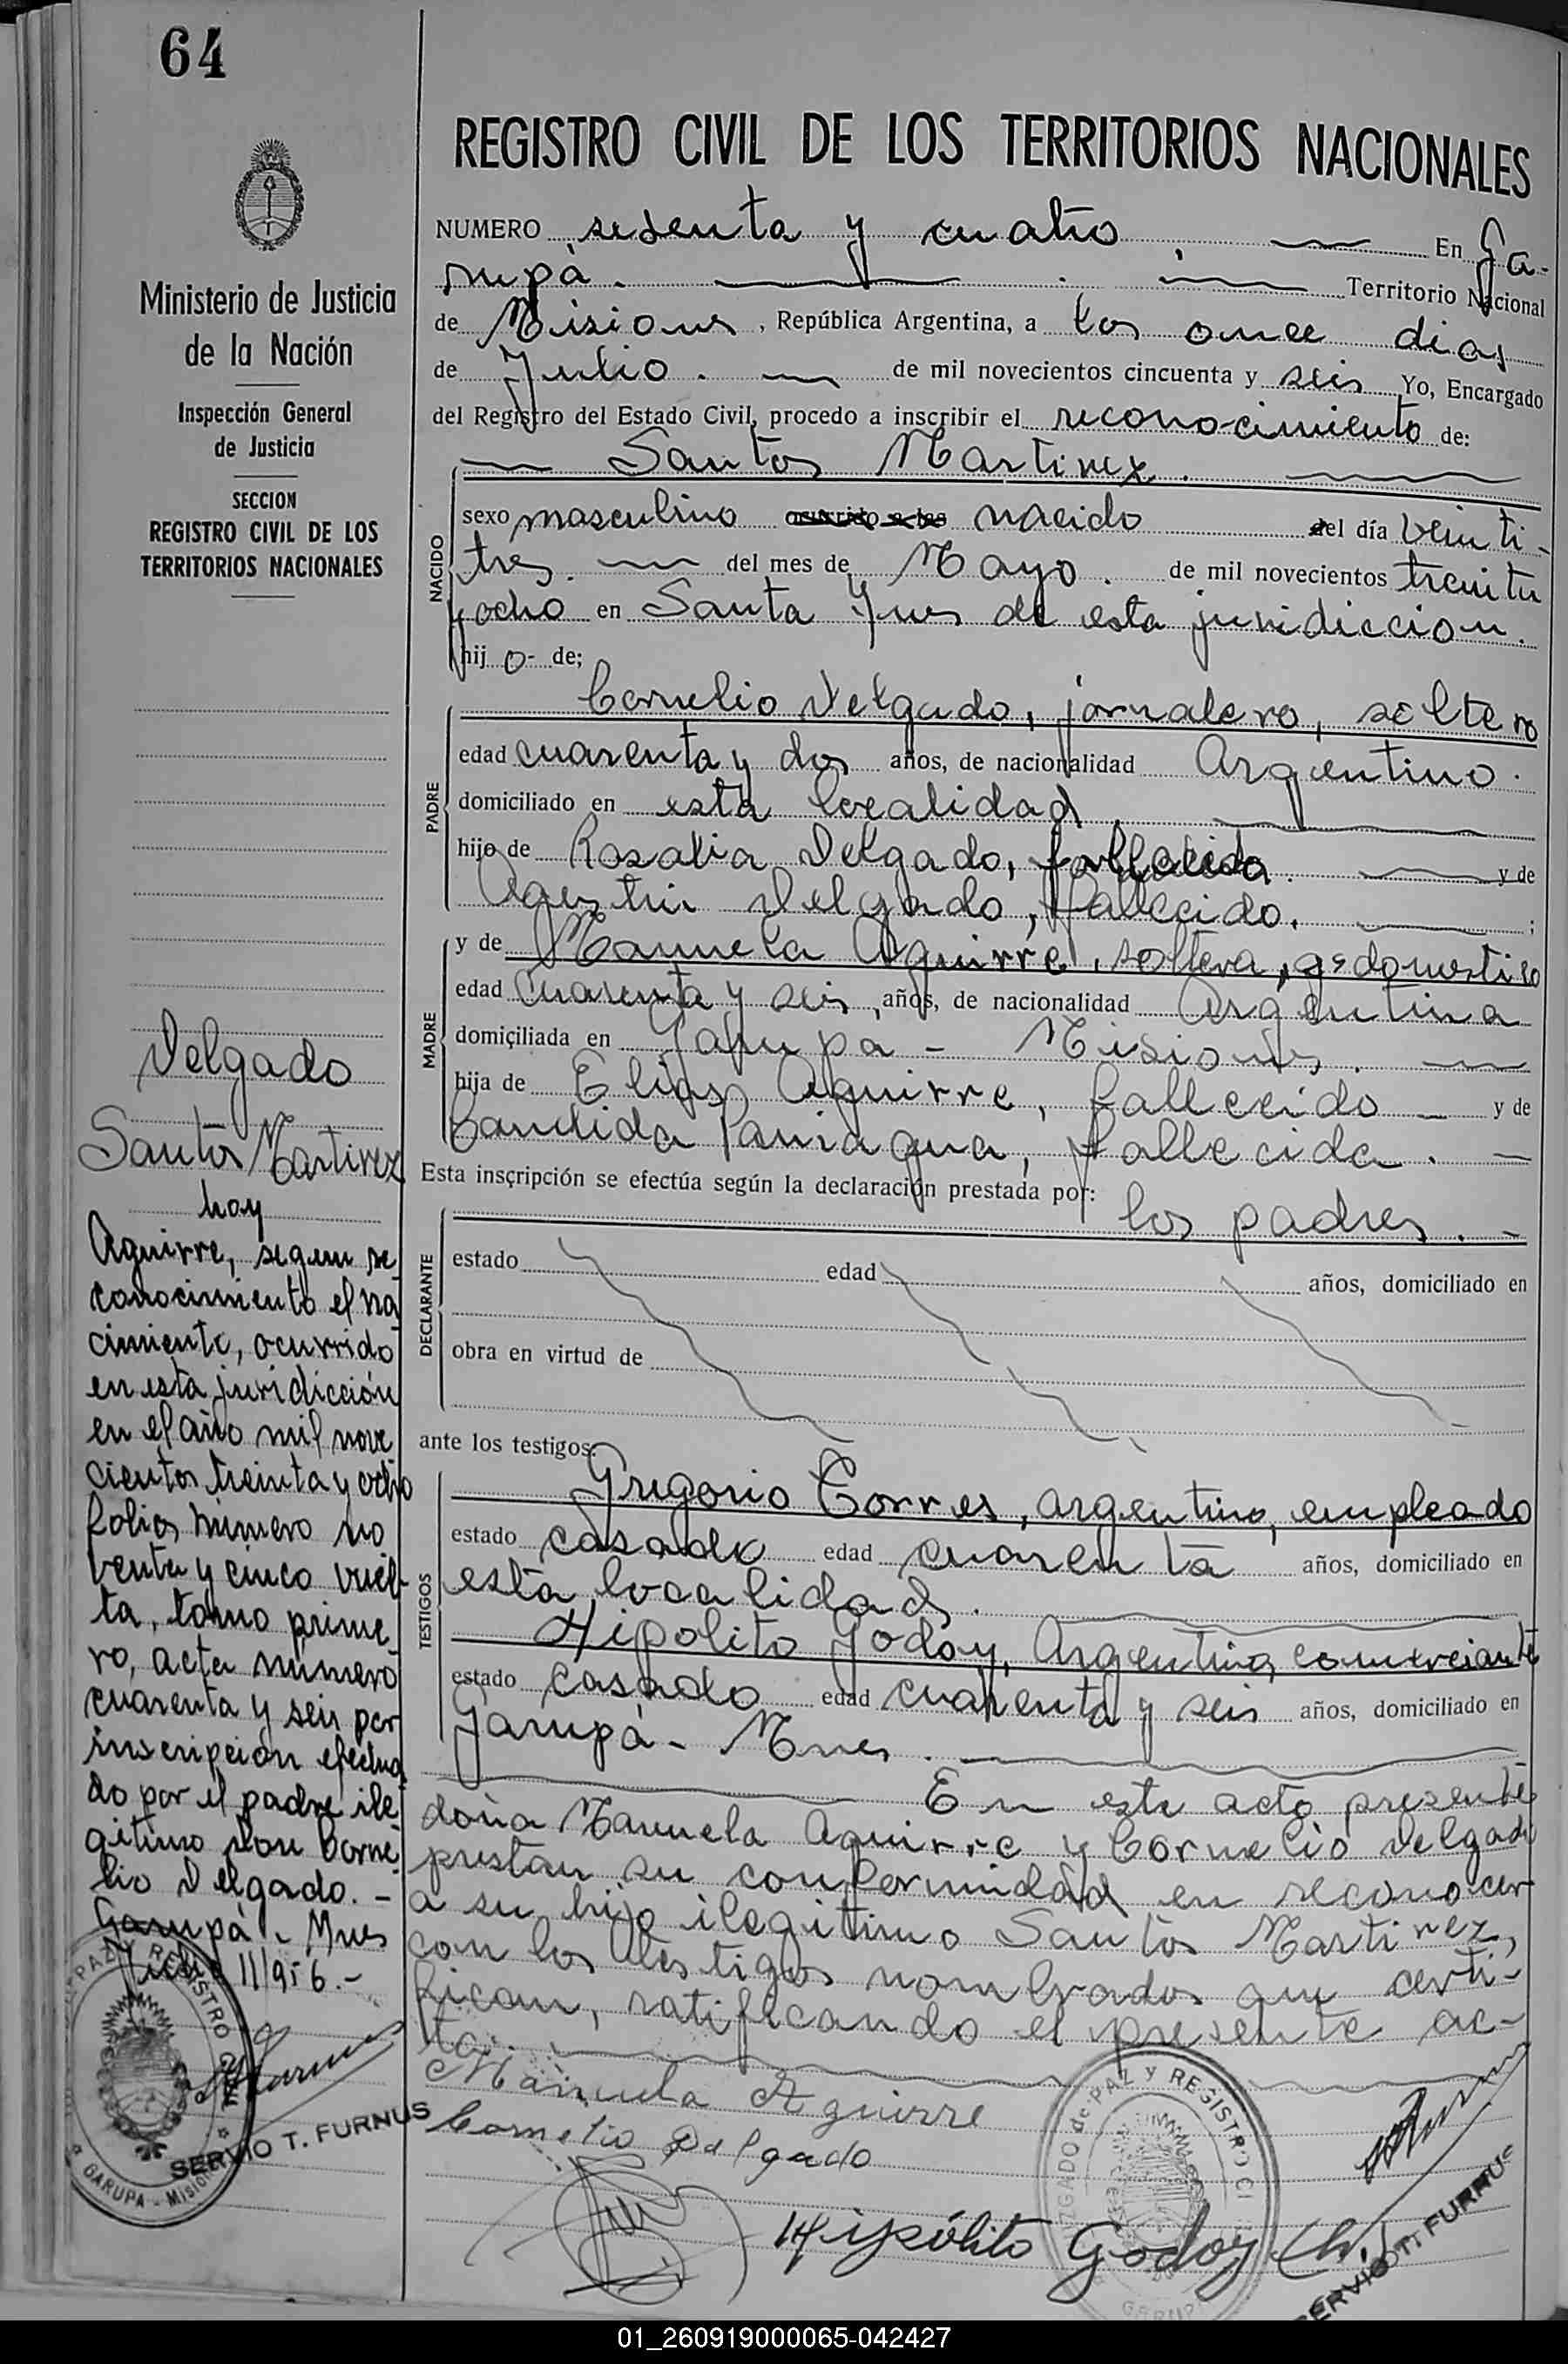 64
REGISTRO CIVIL DE LOS TERRITORIOS NACIONALES
Ministerio de Justicia
de la Nación
Inspección General
de Justicia
SECCION
REGISTRO CIVIL DE LOS
TERRITORIOS NACIONALES
NUMERO sesenta y cuatro En Ga-
rupá. Territorio Nacional
de Misiones, República Argentina, a los once dias
de Julio. de mil novecientos cincuenta y seis Yo, Encargado
del Registro del Estado Civil, procedo a inscribir el reconocimiento de:
Santos Martirez.
NACIDO
sexo masculino ocurrido a las nacido del día veinti-
tres. del mes de Mayo. de mil novecientos treinta
y ocho en Santa Ynes de esta juridiccion.
hijo- de;
PADRE
Cornelio Delgado, jornalero, soltero
edad cuarenta y dos años, de nacionalidad Argentino.
domiciliado en esta localidad
hijo de Rosalia Delgado, fallecida. y de
Agustin Delgado, fallecido. ;
MADRE
y de Manuela Aguirre, soltera, qs domestico
edad cuarenta y seis, años, de nacionalidad Argentina
domiciliada en Garupa - Misiones.
hija de Elias Aguirre, fallecido - y de
Candida Paniagua, fallecida. -
Esta inscripción se efectúa según la declaración prestada por:
los padres. -
DECLARANTE
estado edad años, domiciliado en
obra en virtud de
ante los testigos:
TESTIGOS
Gregorio Torres, argentino, empleado
estado casado edad cuarenta años, domiciliado en
esta localidad.
Hipolito Godoy, Argentino, comerciante
estado casado edad cuarenta y seis años, domiciliado en
Garupá - Mnes.
En este acto presente
doña Manuela Aguirre y Cornelio Delgado
prestan su conformidad en reconocer
a su hijo ilegitimo Santos Martirez,
con los testigos nombrados que certi-
fican, ratificando el presente ac-
ta.
Manuela Aguirre
Cornelio Delgado
Hipólito Godoy (h.)
JUZGADO de PAZ y REGISTRO CI
GARUPA
SERVIO T. FURNUS
Delgado
Santos Martirez
hoy
Aguirre, segun re
conocimiento el na
cimiento, ocurrido
en esta juridicción
en el año mil nove
cientos treinta y ocho
folio, número no
venta y cinco vuel
ta, tomo prime
ro, acta número
cuarenta y seis por
inscripción efectua
do por el padre ile
gitimo don Corne
lio Delgado. -
Garupá - Mnes
Julio 11/956. -
PAZ Y REGISTRO CIVIL
GARUPA - MISIONES
SERVIO T. FURNUS
01_260919000065-042427